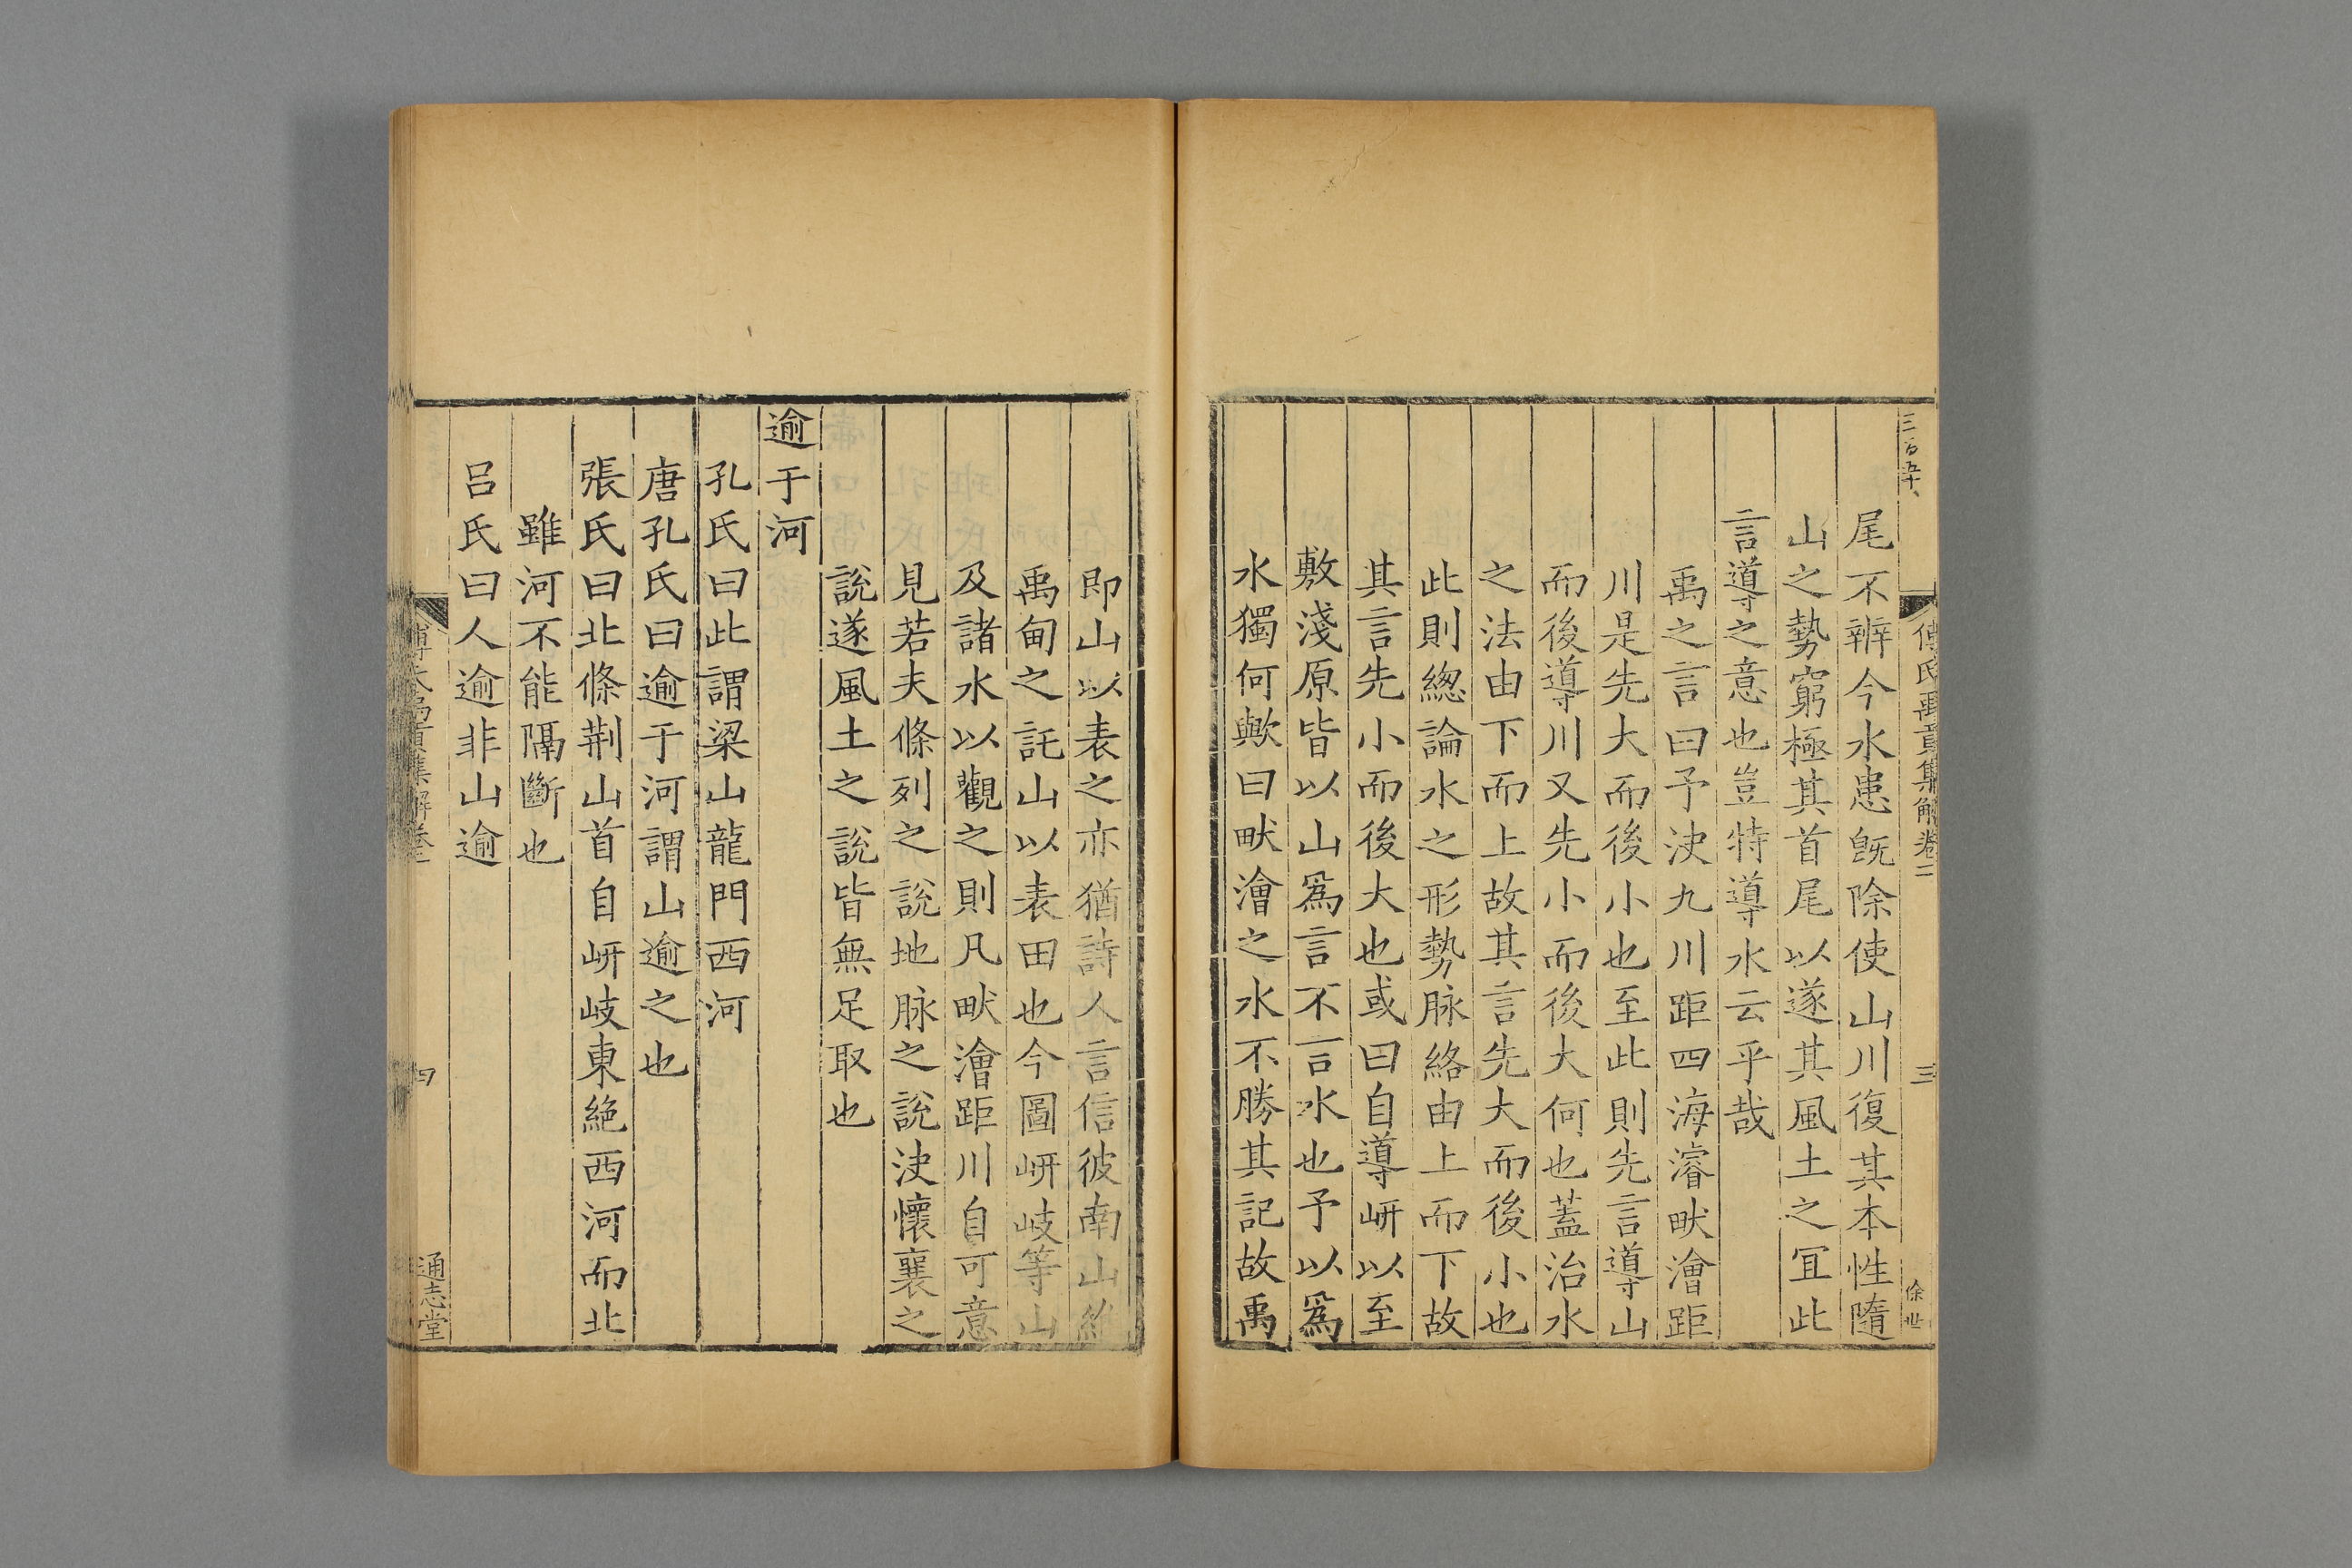 三百五十
傅氏禹貢集解卷二
三
尾不辨今水患旣除使山川復其本性隨
山之勢窮極其首尾以遂其風土之冝此
言導之意也豈特導水云乎哉
禹之言曰予決九川距四海濬畎澮距
川是先大而後小也至此則先言導山
而後導川又先小而後大何也葢治水
之法由下而上故其言先大而後小也
此則緫論水之形勢脉絡由上而下故
其言先小而後大也或曰自導岍以至
敷淺原皆以山爲言不言水也予以爲
水獨何歟曰畎澮之水不勝其記故禹
即山以表之亦猶詩人言信彼南山維
禹甸之託山以表田也今圖岍岐等山
及諸水以觀之則凡畎澮距川自可意
見若夫條列之說地脉之說決懷襄之
說遂風土之說皆無足取也
逾于河
孔氏曰此謂梁山龍門西河
唐孔氏曰逾于河謂山逾之也
張氏曰北條荆山首自岍岐東絶西河而北
雖河不能隔斷也
吕氏曰人逾非山逾
四
通志堂